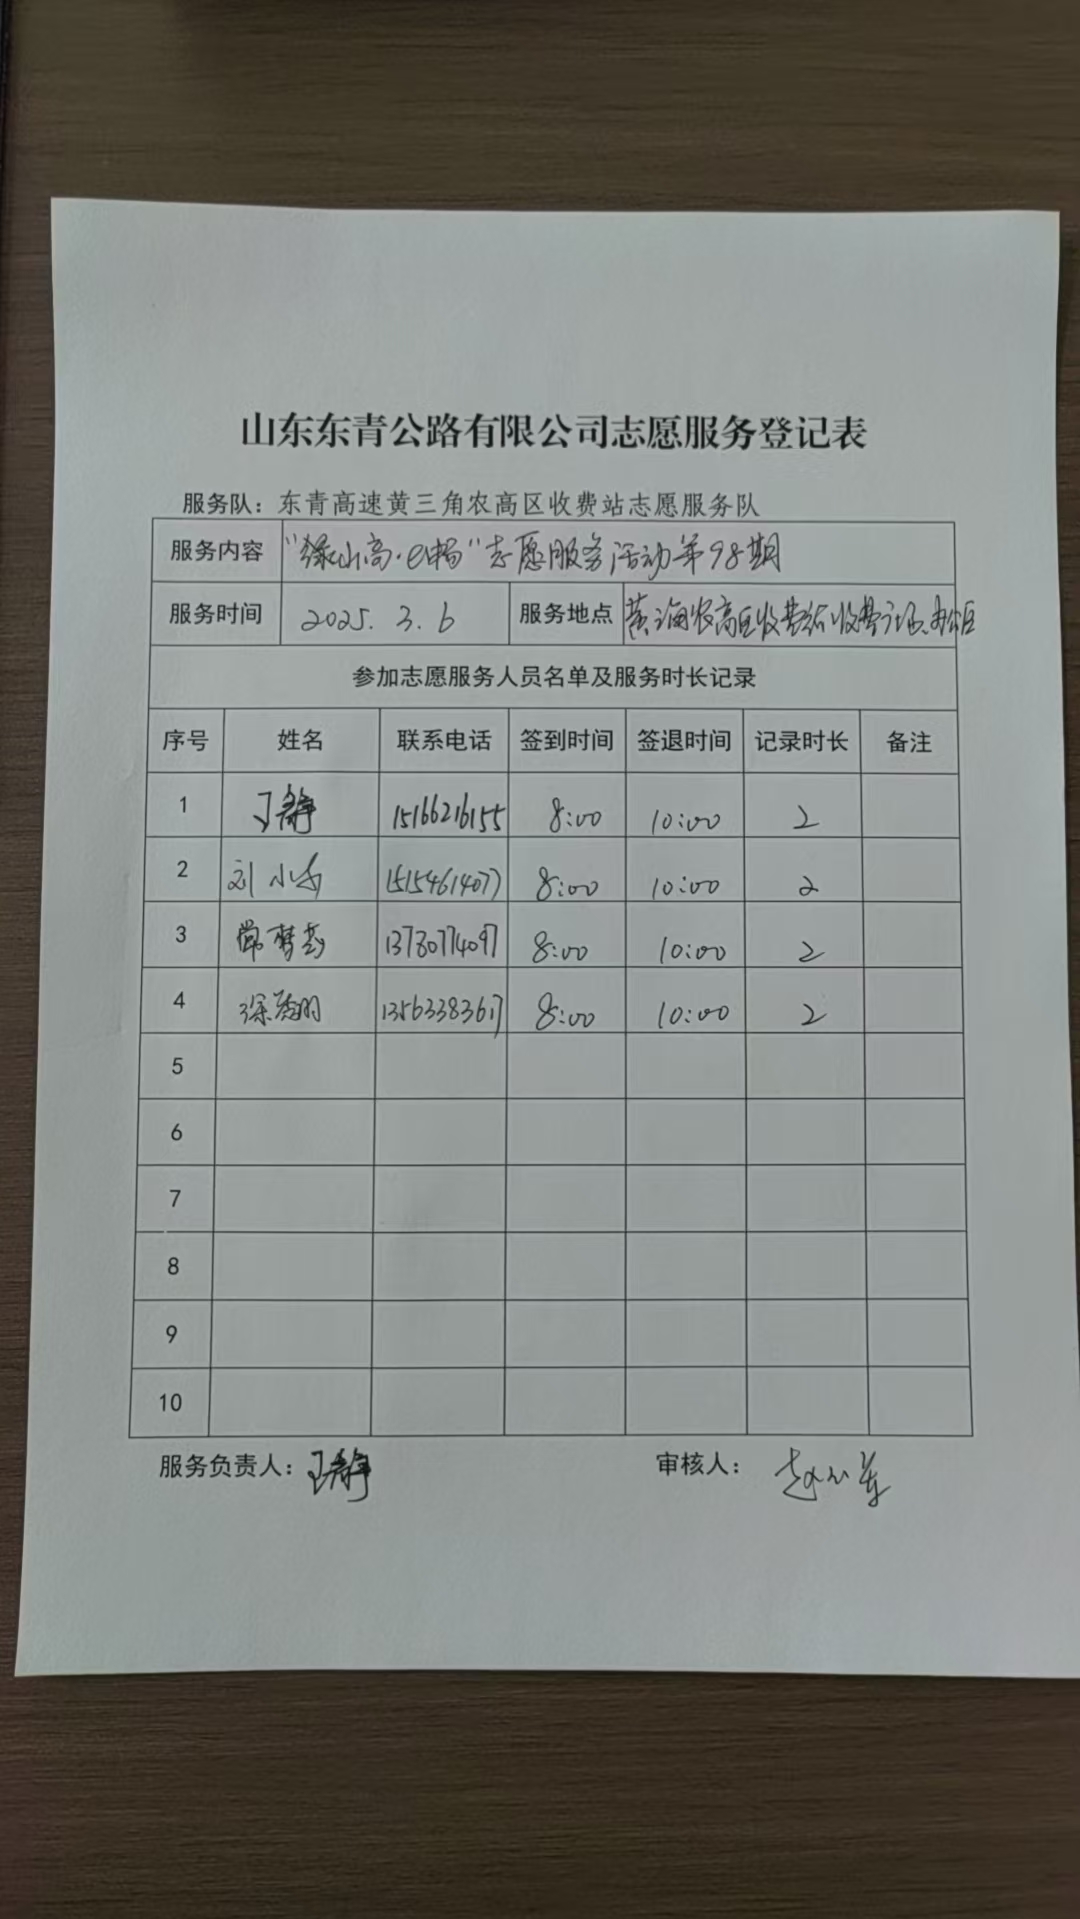 山东东青公路有限公司志愿服务登记表
服务队：东青高速黄三角农高区收费站志愿服务队
服务内容 "绿山高·e畅"志愿服务活动第98期
服务时间 2025.3.6 服务地点 农高区收费站收费广场、办公区
参加志愿服务人员名单及服务时长记录
序号 姓名 联系电话 签到时间 签退时间 记录时长 备注
1 丁静 15166216155 8:00 10:00 2
2 刘小 15154614077 8:00 10:00 2
3 常梦 13780774097 8:00 10:00 2
4 徐 13563383617 8:00 10:00 2
5
6
7
8
9
10
服务负责人：丁静 审核人：赵